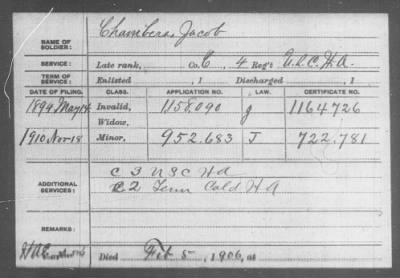 NAME OF SOLDIER: Chambers, Jacob
SERVICE: Late rank, Co. C, 4 Reg't U.S.C.H.A.
TERM OF SERVICE: Enlisted , 1 Discharged , 1
DATE OF FILING. CLASS. APPLICATION NO. LAW. CERTIFICATE NO.
1894 May 14 Invalid, 1158.090 g 1164726
Widow,
1910 Nov 18 Minor, 952.683 J 722.781
ADDITIONAL SERVICES: C 3 U S C H A
C 2 Tenn Cold H A
REMARKS:
Died Feb 5, 1906, at